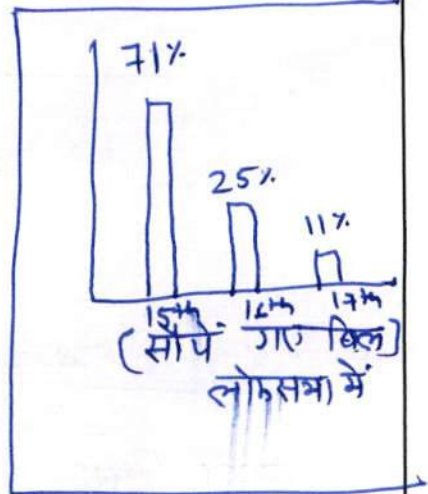 71%
25%
11%
15th 16th 17th
(सौंपे गए बिल)
लोकसभा में